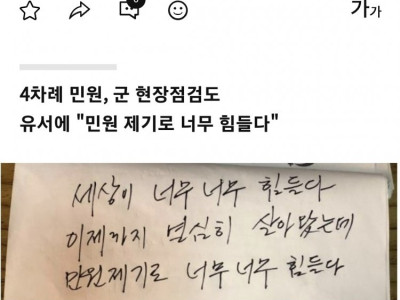 가가
4차례 민원, 군 현장점검도
유서에 "민원 제기로 너무 힘들다"
세상이 너무 너무 힘들다
이제까지 열심히 살아 왔는데
민원제기로 너무 너무 힘들다